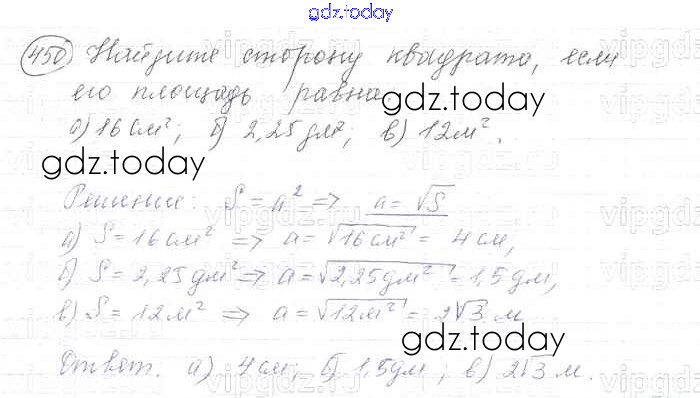 gdz.today
450 Найдите сторону квадрата, если
его площадь равна
gdz.today
а) 16 см²; б) 2,25 дм²; в) 12 м².
gdz.today
Решение: S = a² => a = √S
а) S = 16 см² => a = √16 см² = 4 см,
б) S = 2,25 дм² => a = √2,25 дм² = 1,5 дм,
в) S = 12 м² => a = √12 м² = 2√3 м
gdz.today
Ответ. а) 4 см; б) 1,5 дм; в) 2√3 м.